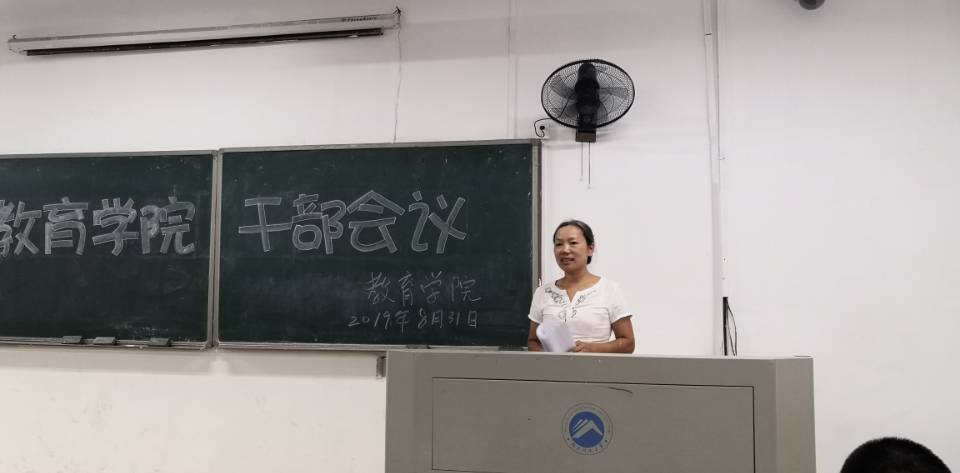 教育学院 干部会议
教育学院
2019年8月31日